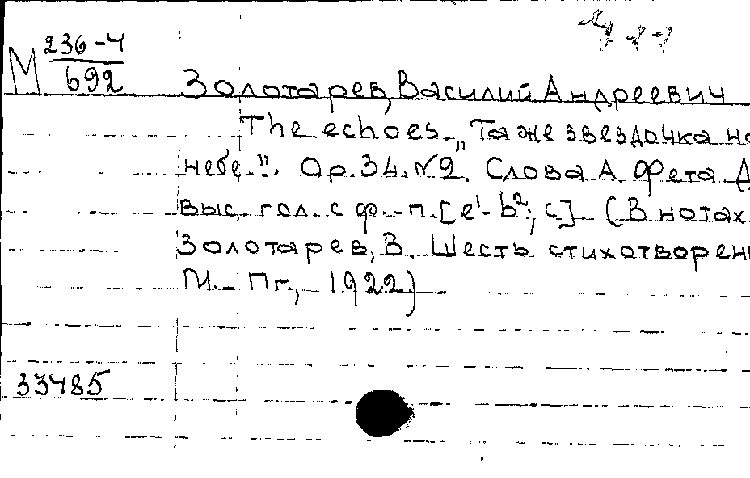 М 236-4
692
Золотарев, Василий Андреевич
The echoes. „Та же звездочка на
небе...". Ор. 34. №2. Слова А. Фета Д
выс. гол. с ф.-п. [e¹-b²; c] (В нотах
Золотарев, В. Шесть стихотворен
М.-Пг., 1922)
33485